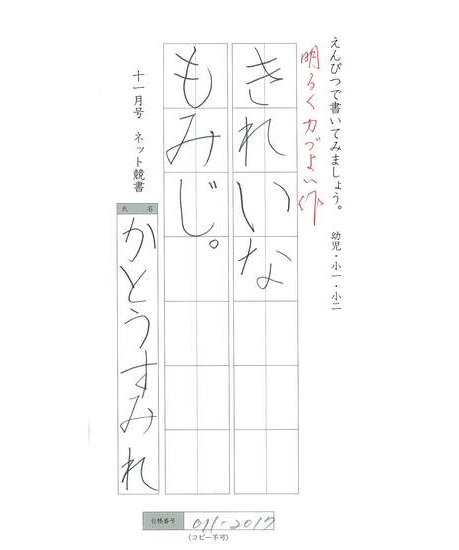 えんぴつで書いてみましょう。 幼児・小一・小二
明るく力づよい作
きれいな
もみじ。
十一月号 ネット競書
氏名
かとうすみれ
台帳番号 011-2017
(コピー不可)